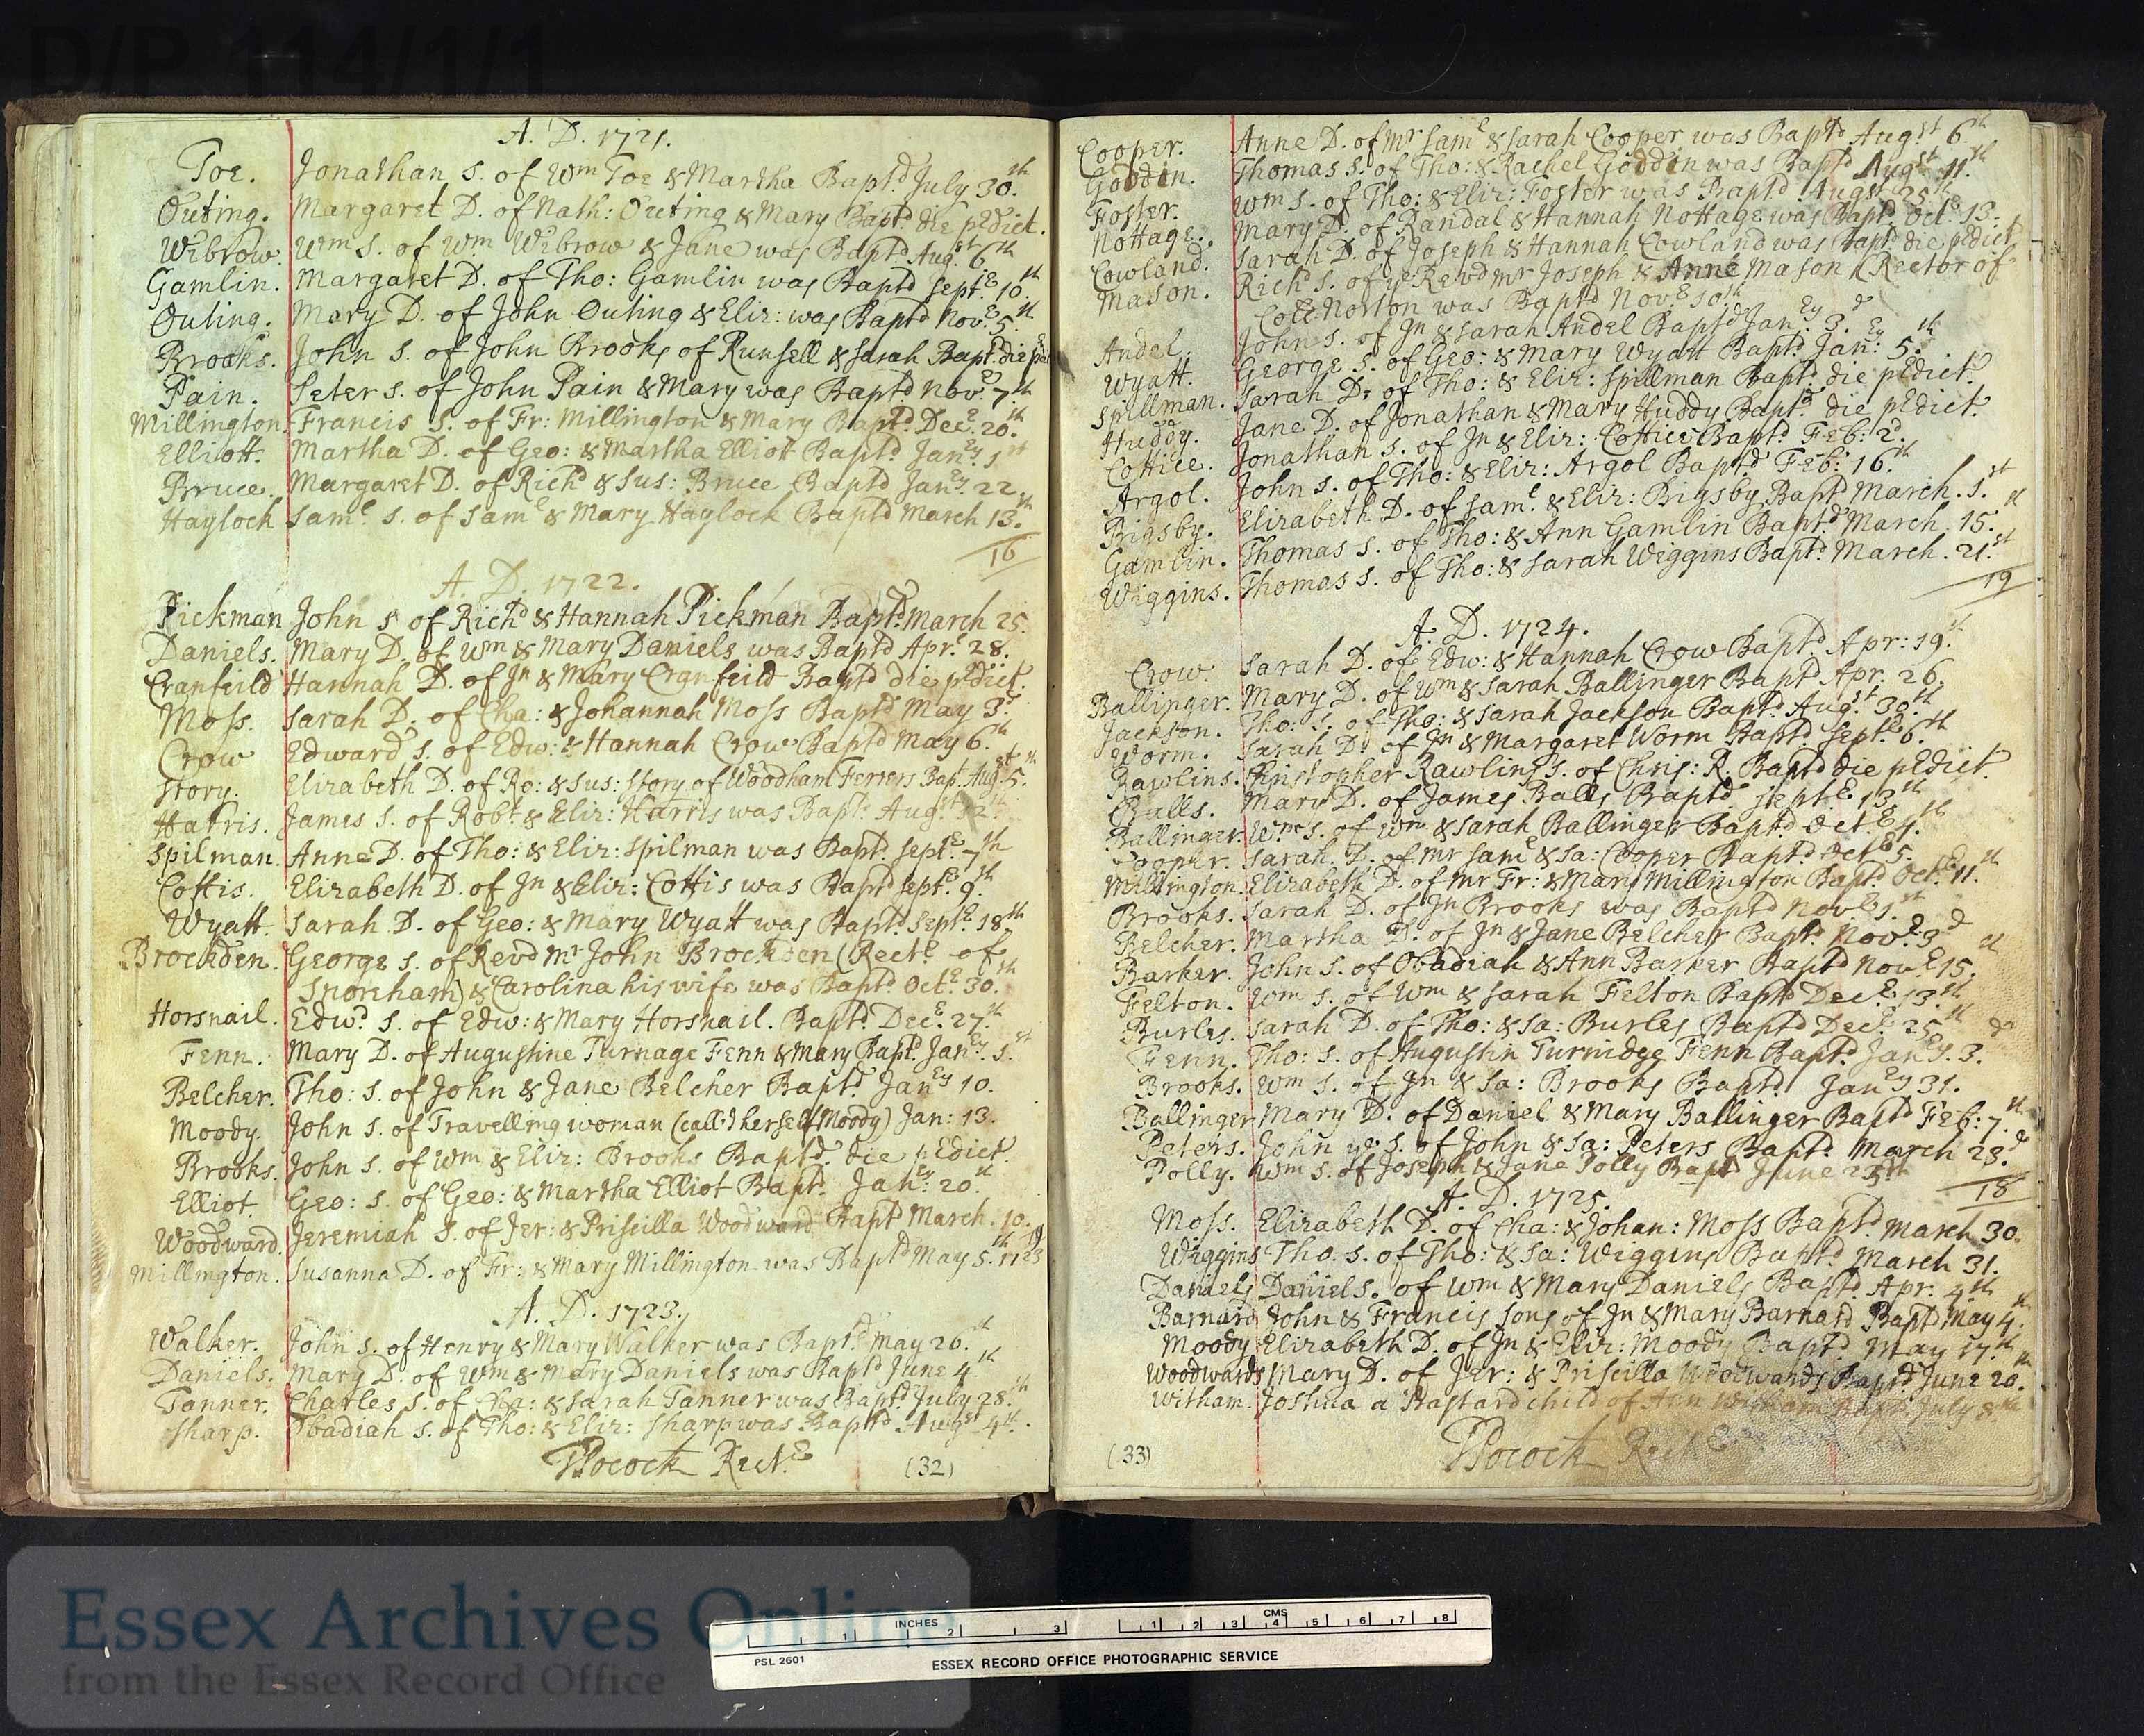 D/P 114/1/1
A. D. 1721.
Toe. Jonathan S. of Wm Toe & Martha Bapt.d July 30.th
Outing. Margaret D. of Nath: Outing & Mary Bapt.d die pdict.
Wibrow. Wm S. of Wm Wibrow & Jane was Bapt.d Aug.st 6th
Gamlin. Margaret D. of Tho: Gamlin was Bapt.d Sept.e 10.th
Outing. Mary D. of John Outing & Eliz: was Bapt.d Nov.e 5.th
Brooks. John S. of John Brooks of Runsell & Sarah Bapt. die
Pain. Peter S. of John Pain & Mary was Bapt.d Nov.e 7th
Millington. Francis S. of Fr: Millington & Mary Bapt.d Dec.e 20.th
Elliott. Martha D. of Geo: & Martha Elliot Bapt.d Jan.ey 1st
Bruce. Margaret D. of Rich.d & Sus: Bruce Bapt.d Jan.ey 22.
Haylock Sam.l S. of Sam.l & Mary Haylock Bapt.d March 13.th
16
A. D. 1722.
Pickman John S of Rich.d & Hannah Pickman Bapt.d March 25.
Daniels. Mary D. of Wm & Mary Daniels was Bapt.d Apr.l 28.
Cranfeild Hannah D. of Jn & Mary Cranfeild Bapt.d die pdict.
Moss. Sarah D. of Cha: & Johannah Moss Bapt.d May 3.d
Crow Edward S. of Edw: & Hannah Crow Bapt.d May 6.th
Story. Elizabeth D. of Ro: & Sus: Story of Woodham Ferrers Bap.t Aug.st 5.th
Harris. James S. of Rob.t & Eliz: Harris was Bapt. Aug.st 12.
Spilman. Anne D. of Tho: & Eliz: Spilman was Bapt.d Sept.e 7th
Cottis. Elizabeth D. of Jn & Eliz: Cottis was Bapt.d Sept.e 9.th
Wyatt. Sarah D. of Geo: & Mary Wyatt was Bapt.d Sept.e 18.th
Brockden. George S. of Revd Mr John Brockden (Rect.e of
Snoreham) & Carolina his wife was Bapt.d Oct.e 30.th
Horsnail. Edw.d S. of Edw: & Mary Horsnail. Bapt.d Dec.e 27.th
Fenn. Mary D. of Augustine Turnage Fenn & Mary Bapt.d Jan.ey 1.st
Belcher. Tho: S. of John & Jane Belcher Bapt.d Jan.ey 10.
Moody. John S. of Travelling woman (call.d herself Moody) Jan: 13.
Brooks. John S. of Wm & Eliz: Brooks Bapt.d die pedict.
Elliot. Geo: S. of Geo: & Martha Elliot Bapt.d Jan.ey 20.th
Woodward. Jeremiah S. of Jer: & Priscilla Woodward Bapt.d March. 10.
Millington. Susanna D. of Fr: & Mary Millington was Bapt.d May 5.th 1723
A. D. 1723.
Walker. John S. of Henry & Mary Walker was Bapt.d May 26.th
Daniels. Mary D. of Wm & Mary Daniels was Bapt.d June 4th
Tanner. Charles S. of Cha: & Sarah Tanner was Bapt.d July 28.th
Sharp. Obadiah S. of Tho: & Eliz: Sharp was Bapt.d Aug.st 4th.
Pocock Rect.e
(32)
Cooper. Anne D. of Mr Sam.l & Sarah Cooper was Bapt.d Aug.st 6th
Goddin. Thomas S. of Tho: & Rachel Goddin was Bapt.d Aug.st 11.th
Foster. Wm S. of Tho: & Eliz: Foster was Bapt.d Aug.st 25.th
Nottage. Mary D. of Randal & Hannah Nottage was Bapt.d Oct.e 13.
Cowland. Sarah D. of Joseph & Hannah Cowland was Bapt.d die pdict
Mason. Rich.d S. of ye Revd Mr Joseph & Anne Mason (Rector of
Norton was Bapt.d Nov.e 10th
Andel. John S. of Jn & Sarah Andel Bapt.d Jan.ey 3.d
Wyatt. George S. of Geo: & Mary Wyatt Bapt.d Jan:ey 5.th
Spillman. Sarah D. of Tho: & Eliz: Spillman Bapt.d die pedict.
Huddy. Jane D. of Jonathan & Mary Huddy Bapt.d die pedict.
Cottice. Jonathan S. of Jn & Eliz: Cottice Bapt.d Feb: 2.d
Argol. John S. of Tho: & Eliz: Argol Bapt.d Feb: 16.th
Bigsby. Elizabeth D. of Sam.l & Eliz: Bigsby Bapt.d March. 1.st
Gamlin. Thomas S. of Tho: & Ann Gamlin Bapt.d March. 15.th
Wiggins. Thomas S. of Tho: & Sarah Wiggins Bapt.d March. 21.st
19
A. D. 1724.
Crow. Sarah D. of Edw: & Hannah Crow Bapt.d Apr: 19.th
Ballinger. Mary D. of Wm & Sarah Ballinger Bapt.d Apr. 26.
Jackson. Tho: S. of Tho: & Sarah Jackson Bapt.d Aug.st 30.th
Worm. Sarah D. of Jn & Margaret Worm Bapt.d Sept.e 6.th
Rawlins. Christopher Rawlins S. of Chris: R. Bapt.d die pedict.
Balls. Mary D. of James Balls Bapt.d Sept.e 13.th
Ballinger Wm S. of Wm & Sarah Ballinger Bapt.d Oct.e 4.th
Cooper. Sarah. D. of Mr Sam.l & Sa: Cooper Bapt.d Oct.e 5.
Millington. Elizabeth D. of Mr Fr: & Mary Millington Bapt.d Oct.e 11.th
Brooks. Sarah D. of Jn Brooks was Bapt.d Nov.e 1.st
Belcher. Martha D. of Jn & Jane Belcher Bapt.d Nov.e 3d
Barker. John S. of Obadiah & Ann Barker Bapt.d Nov.e 15.th
Felton. Wm S. of Wm & Sarah Felton Bapt.d Dec.e 13.th
Burles. Sarah D. of Tho: & Sa: Burles Bapt.d Dec.e 25.th
Fenn. Tho: S. of Augustin Turnidge Fenn Bapt.d Jan.ey 3.d
Brooks. Wm S. of Jn & Sa: Brooks Bapt.d Jan.ey 31.
Ballinger Mary D. of Daniel & Mary Ballinger Bapt.d Feb: 7.th
Peters. John ye S. of John & Sa: Peters Bapt.d March 23.d
Polly. Wm S. of Joseph & Jane Polly Bapt.d June
18
A. D. 1725.
Moss. Elizabeth D. of Cha: & Johan: Moss Bapt.d March 30.
Wiggins Tho. S. of Tho: & Sa: Wiggins Bapt.d March 31.
Daniels Daniel S. of Wm & Mary Daniels Bapt.d Apr. 4th
Barnard John & Francis Sons of Jn & Mary Barnard Bapt.d May 4.th
Moody Elizabeth D. of Jn & Eliz: Moody Bapt.d May 17.th
Woodwards Mary D. of Jer: & Priscilla Woodwards Bapt.d June 20.th
Witham. Joshua a Bastard child of Ann Witham Bapt. July 8th
Pocock Rect.e
(33)
Essex Archives Online
from the Essex Record Office
INCHES 1 2 3 CMS 1 2 3 4 5 6 7 8
PSL 2601 ESSEX RECORD OFFICE PHOTOGRAPHIC SERVICE